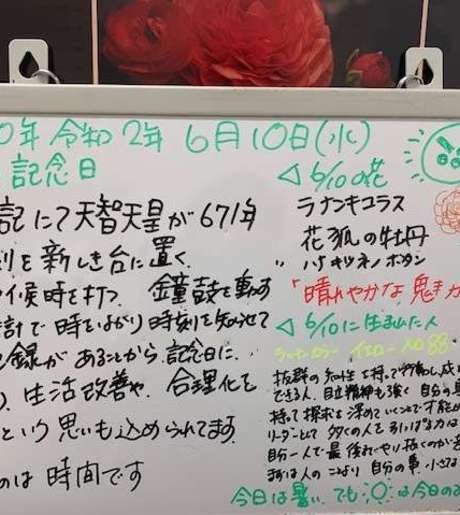 0年 令和2年 6月10日(水)
記念日
記にて天智天皇が671年
刻を新しき台に置く、
候時を打つ、鐘鼓を動かす
計で時をはかり時刻を知らせて
録があることから記念日に
、生活改善や、合理化を
という思いも込められてます
のは時間です
◁ 6/10の花
ラナンキュラス
花狐の牡丹
ハナキツネノボタン
「晴れやかな魅力
◁ 6/10に生まれた人
抜群の知性を持って
できる人、自立精神も強く 自分の
持って探求を深めていくことで才能が
リーダーとして 多くの人を
自分一人で最後までやり抜くのが
まずは人のことより 自分の事、小さな
今日は暑い。でも は今日のみ